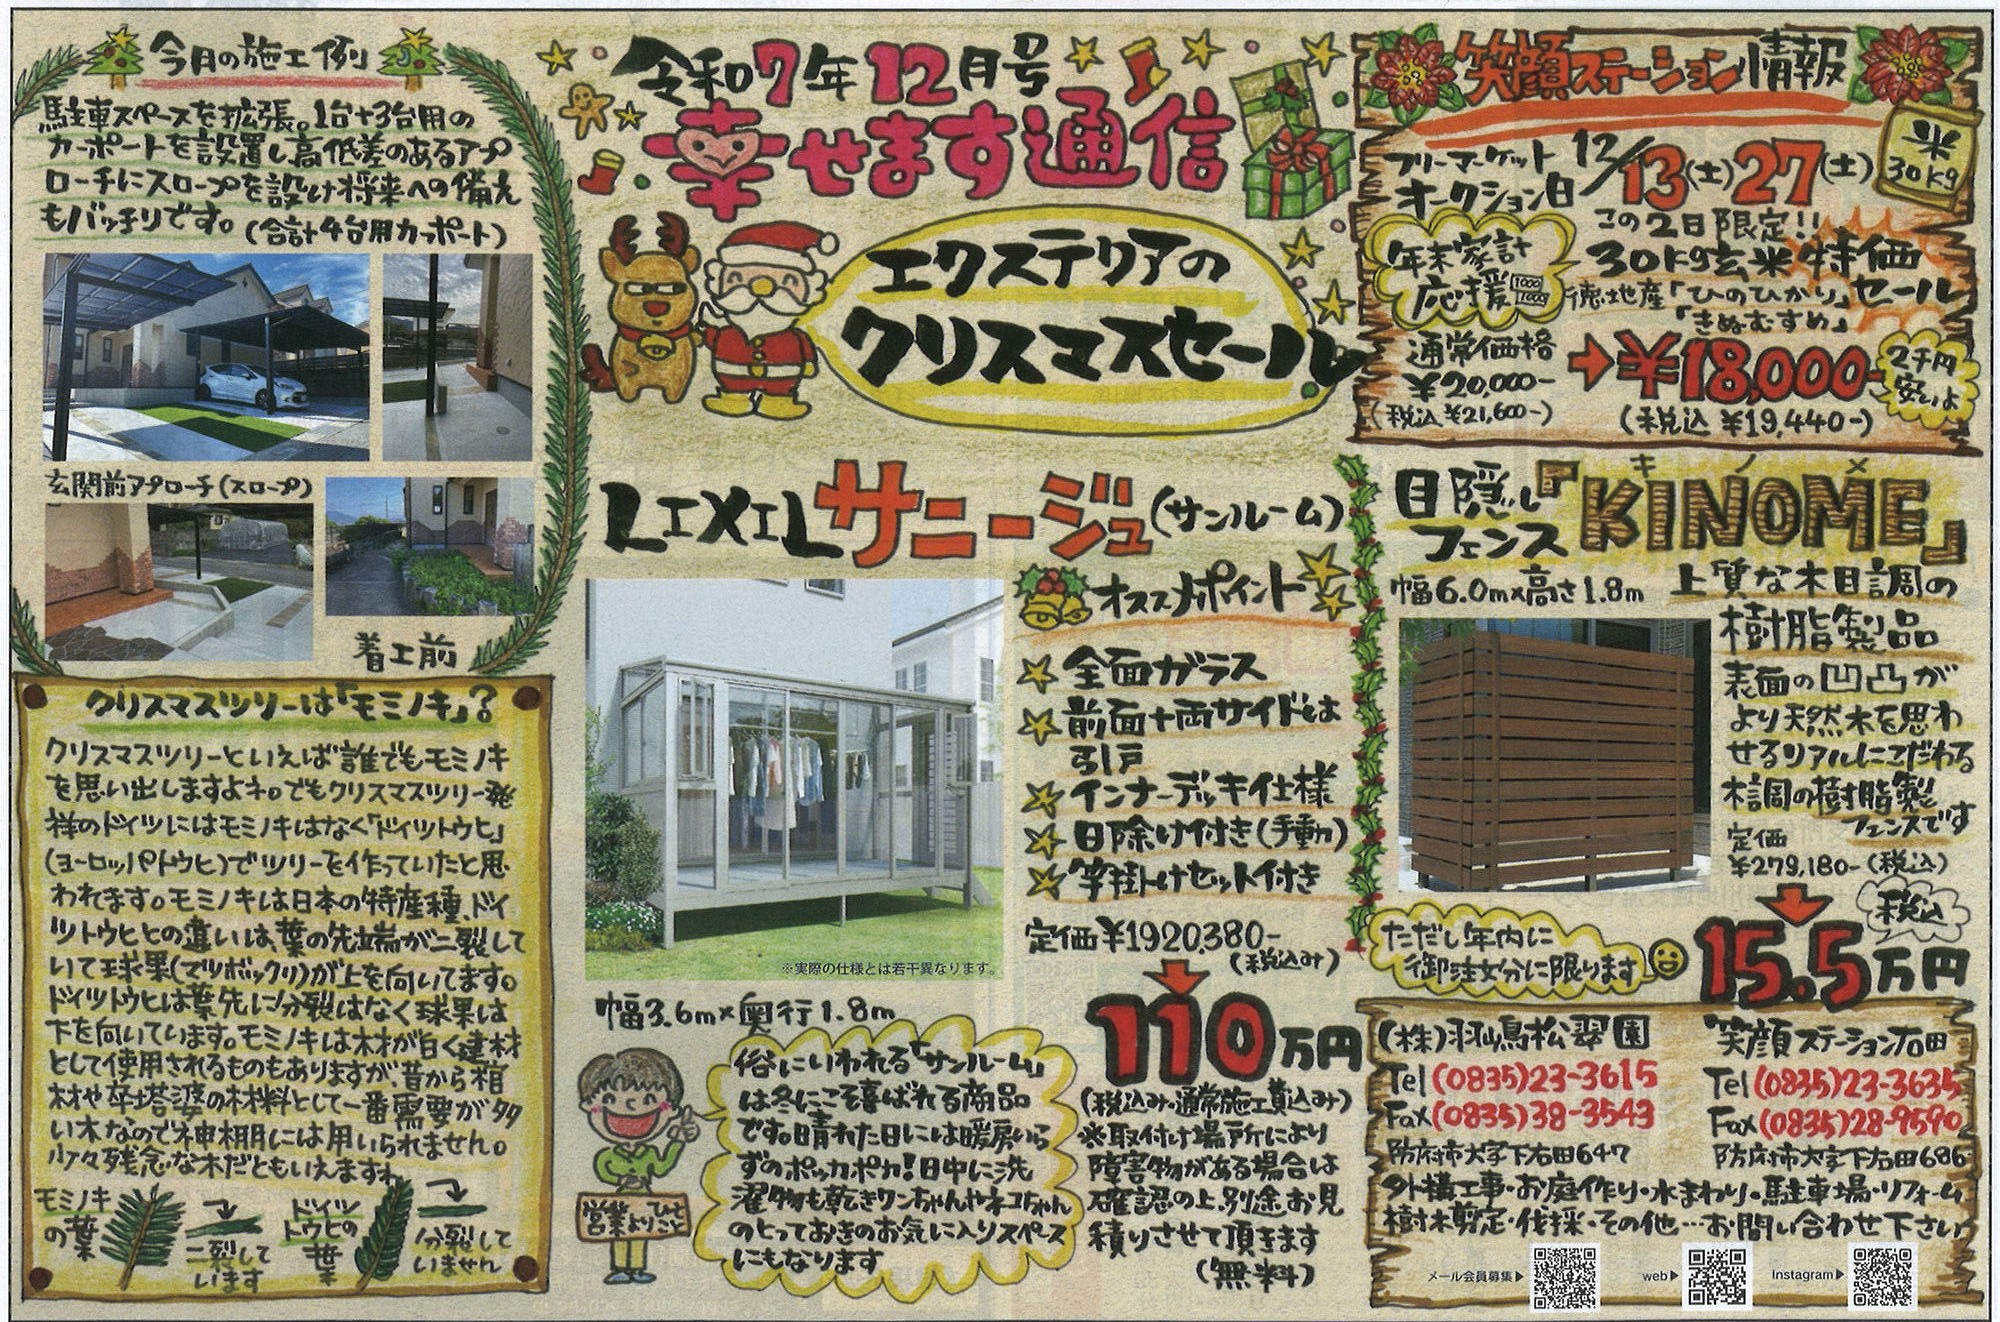 令和7年12月号
幸せます通信
エクステリアの
クリスマスセール
今月の施工例
駐車スペースを拡張。1台+3台用の
カーポートを設置し高低差のあるアプ
ローチにスロープを設け将来への備え
もバッチリです。(合計4台用カーポート)
玄関前アプローチ(スロープ)
着工前
クリスマスツリーは「モミノキ」?
クリスマスツリーといえば誰でもモミノキ
を思い出しますよネ。でもクリスマスツリー発
祥のドイツにはモミノキはなく「ドイツトウヒ」
(ヨーロッパトウヒ)でツリーを作っていたと思
われます。モミノキは日本の特産種、ドイ
ツトウヒとの違いは、葉の先端が二裂して
いて球果(マツボックリ)が上を向いてます。
ドイツトウヒは葉先に分裂はなく球果は
下を向いています。モミノキは木材が白く建材
として使用されるものもありますが、昔から棺
材や卒塔婆の材料として一番需要が多
い木なので神棚には用いられません。
少々残念な木だともいえますね
モミノキ
の葉
二裂して
います
ドイツ
トウヒの
葉
分裂して
いません
LIXILサニージュ(サンルーム)
※実際の仕様とは若干異なります。
幅3.6m×奥行1.8m
オススメポイント
全面ガラス
前面+両サイドは
引戸
インナーデッキ仕様
日除け付き(手動)
竿掛けセット付き
定価¥1920,380-
(税込み)
110万円
(税込み・通常施工費込み)
※取付け場所により
障害物がある場合は
確認の上、別途お見
積りさせて頂きます
(無料)
俗にいわれる「サンルーム」
は冬にこそ喜ばれる商品
です。晴れた日には暖房いら
ずのポッカポカ!日中に洗
濯物も乾きワンちゃんやネコちゃん
のとっておきのお気に入りスペース
にもなります
営業よりひとこと
笑顔ステーション情報
米
30kg
フリーマーケット
オークション日
12/13(土)27(土)
この2日限定!!
年末家計
応援
1000
1000
30kg玄米特価
セール
徳地産「ひのひかり」
「きぬむすめ」
通常価格
¥20,000-
(税込¥21,600-)
¥18,000-
(税込¥19,440-)
2千円
安いよ
目隠し
フェンス
キノメ
『KINOME』
幅6.0m×高さ1.8m
上質な木目調の
樹脂製品
表面の凹凸が
より天然木を思わ
せるリアルにこだわる
木調の樹脂製
フェンスです
定価
¥279,180-(税込)
税込
15.5万円
ただし年内に
御注文分に限ります
(株)羽嶋松翠園
Tel(0835)23-3615
Fax(0835)38-3543
防府市大字下右田647
笑顔ステーション右田
Tel(0835)23-3635
Fax(0835)28-9590
防府市大字下右田686
外構工事・お庭作り・水まわり・駐車場・リフォーム
樹木剪定・伐採・その他…お問い合わせ下さい
メール会員募集▶
web▶
Instagram▶